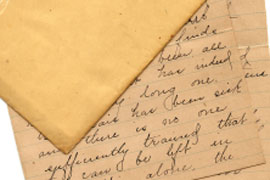 finds
been all
has indeed
long one.
has been sick
and there is no one
sufficiently trained that
can be left in
alone the